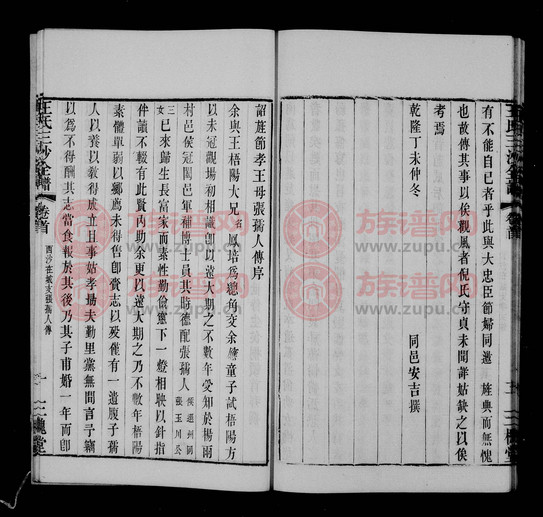 有不能自已者乎此與大忠臣節婦同邀 旌典而無愧
也故傳其事以俟觀風者倪氏守貞未聞詳姑缺之以俟
考焉
乾隆丁未仲冬
同邑安吉撰
王氏三沙全譜 卷首
三槐堂
詔旌節孝王母張孺人傳序
余與王梧陽大兄 諱 鳳培爲總角交余應童子試梧陽方
以未冠觀場初相識卽以遠大期之不數年受知於楊雨
村邑侯冠闔邑軍補博士員其時德配張孺人 候選州同張玉川公
三女 已來歸生長富家而素性勤儉窻下一燈相映以針指
伴讀不輟有此賢內助余更以遠大期之乃不數年梧陽
素體單弱以鄉薦未得咎卽賫志以歿僅有一遺腹子孺
人以養以教得成立且事姑孝勗夫勤里黨無間言予竊
以爲不得酬其志當食報於其後乃其子甫婚一年而卽
王氏三沙全譜 卷首 西沙在城支張孺人傳 一 三槐堂
族谱网
www.zupu.cn
族谱网
www.zupu.cn